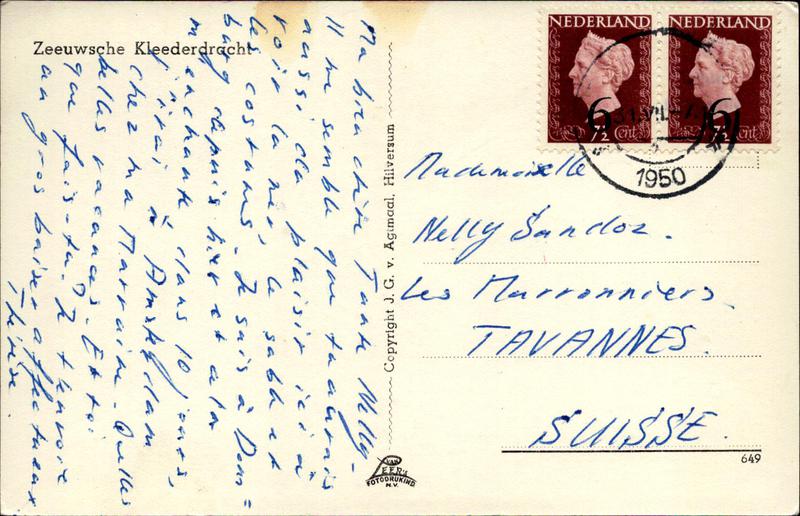 Zeeuwsche Kleederdracht
Ma bien chère Tante Nelly-
Il me semble que tu aurais
aussi du plaisir ici à
voir la mer le sable et
les costumes. Je suis à Dom=
burg depuis hier et
enchantée dans 10 jours,
j'irai à Amsterdam
chez ma Marraine. Quelles
belles vacances. Et toi
que fais-tu. Je t'envoie
un gros baiser affectueux
Thérèse.
Copyright J. G. v. Agtmaal, Hilversum
VAN
LEER'S
FOTODRUKIND.
N.V.
NEDERLAND
6
7½ Cent
NEDERLAND
6
7½ Cent
1950
Mademoiselle
Nelly Sandoz.
Les Marronniers.
TAVANNES.
SUISSE.
649